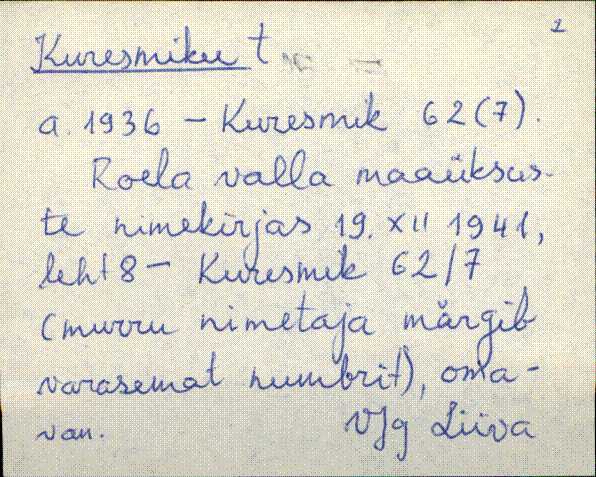 2
Kuresmiku t
a. 1936 – Kuresmik 62(7).
Roela valla maaüksus-
te nimekirjas 19. XII 1941,
leht 8 – Kuresmik 62/7
(murru nimetaja märgib
varasemat numbrit), oma-
van. VJg Liiva